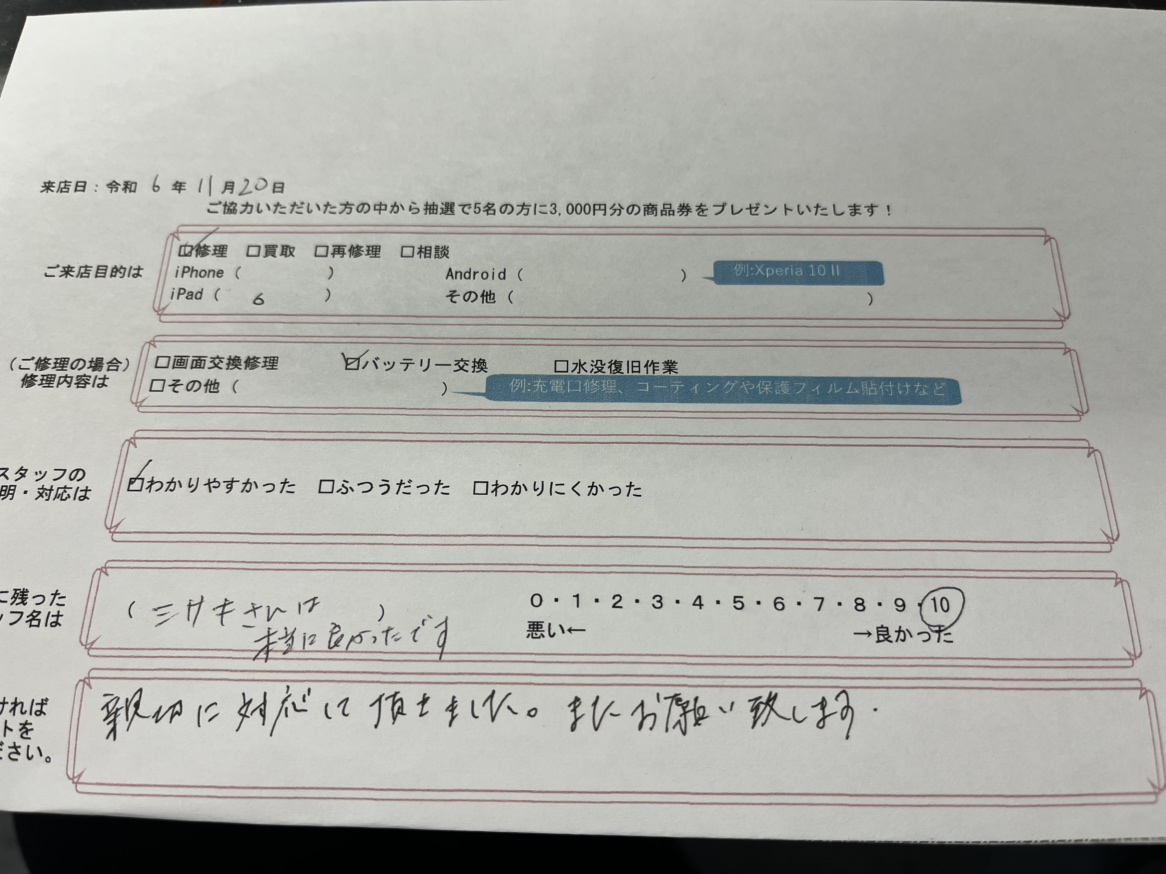 来店日：令和 6 年 11 月 20 日
ご協力いただいた方の中から抽選で5名の方に3,000円分の商品券をプレゼントいたします！
ご来店目的は
☑修理 □買取 □再修理 □相談
iPhone（ ） Android（ ） 例:Xperia 10 II
iPad（ 6 ） その他（ ）
（ご修理の場合）
修理内容は
□画面交換修理 ☑バッテリー交換 □水没復旧作業
□その他（ ） 例:充電口修理、コーティングや保護フィルム貼付けなど
スタッフの
明・対応は
☑わかりやすかった □ふつうだった □わかりにくかった
に残った
ッフ名は
（ミサキさんは ）
本当に良かったです
0・1・2・3・4・5・6・7・8・9・10
悪い← →良かった
ければ
トを
ださい。
親切に対応して頂きました。またお願い致します.